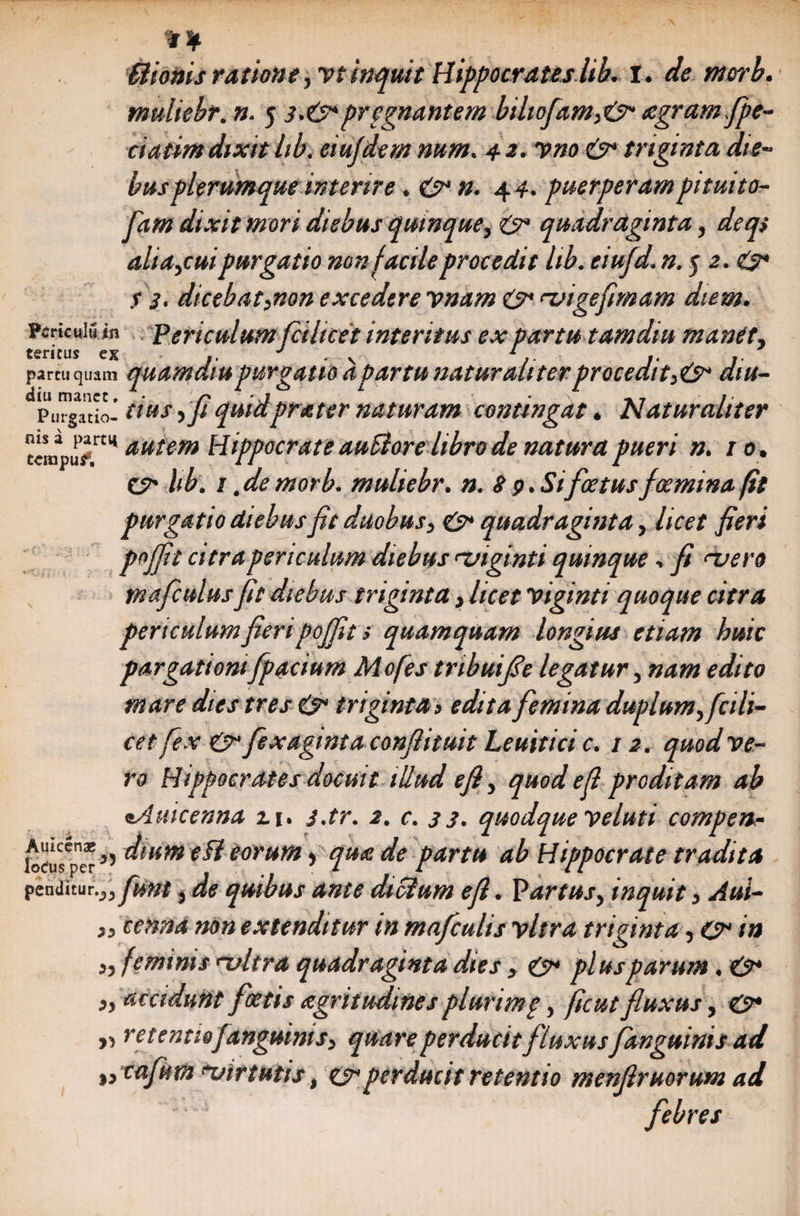 14
ctionis ratione, vt inquit Hippocrates lib. 1. de morb.
muliebr. n. 53. & pręgnantem biliosam, & ægram spe-
ciatim dixit lib. eiusdem num. 42. vno & triginta die-
bus plerumque interire. & n. 44. puerperam pituito-
sam dixit mori diebus quinque, & quadraginta, deq;
alia, cui purgatio non facile procedit lib. eiusd. n. 52. &
53. dicebat, non excedere vnam & vigesimam diem.
Periculū in
teritus ex
partu quam
diu manet.
Periculum scilicet interitus ex partu tamdiu manet,
quamdiu purgatio à partu naturaliter procedit, & diu-
tius, si quid præter naturam contingat. Naturaliter
Purgatio-
nis à partu
tempus.
autem Hippocrate auctore libro de natura pueri n. 10.
& lib. 1. de morb. muliebr. n. 89. Si fœtus fœmina sit
purgatio diebus fit duobus, & quadraginta, licet fieri
possit citra periculum diebus viginti quinque, si vero
masculus sit diebus triginta, licet viginti quoque citra
periculum fieri possit; quamquam longius etiam huic
pargationi spacium Moses tribuisse legatur, nam edito
mare dies tres & triginta, edita femina duplum, scili-
cet sex & sexaginta constituit Leuitici c. 12. quod ve-
ro Hippocrates docuit illud est, quod est proditam ab
Auicenna 21. 3. tr. 2. c. 33. quodque veluti compen-
Auicenæ
locus per
penditur.
„ dium est eorum, quæ de partu ab Hippocrate tradita
„ sunt, de quibus ante dictum est. Partus, inquit, Aui-
„ cenna non extenditur in masculis vltra triginta, & in
„ feminis vltra quadraginta dies, & plus parum. &
„ accidunt fœtis ægritudines plurimę, sicut fluxus, &
„ retentio sanguinis, quare perducit fluxus sanguinis ad
„ casum virtutis, & perducit retentio menstruorum ad
febres